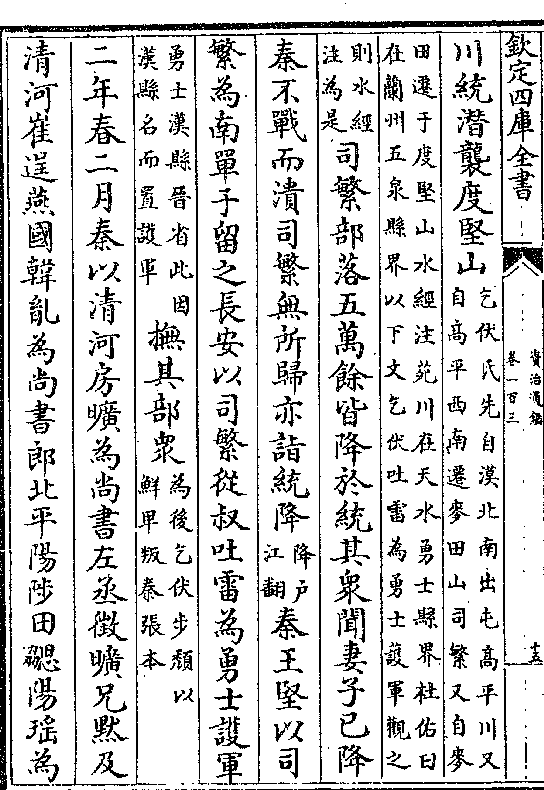 欽定四庫全書
資治通鑑
卷一百三
十五
川統潛襲度堅山乞伏氏先自漠北南出屯高平川又
自高平西南遷麥田山司繁又自麥
田遷于度堅山水經注苑川在天水勇士縣界杜佑曰
在蘭州五泉縣界以下文乞伏吐雷為勇士護軍觀之
則水經
注為是司繁部落五萬餘皆降於統其衆聞妻子已降
秦不戰而潰司繁無所歸亦詣統降降户
江翻秦王堅以司
繁為南單于留之長安以司繁從叔吐雷為勇士護軍
勇士漢縣晉省此因
漢縣名而置護軍撫其部衆為後乞伏步頽以
鮮卑叛秦張本
二年春二月秦以清河房曠為尚書左丞徵曠兄默及
清河崔逞燕國韓胤為尚書郎北平陽陟田勰陽瑶為